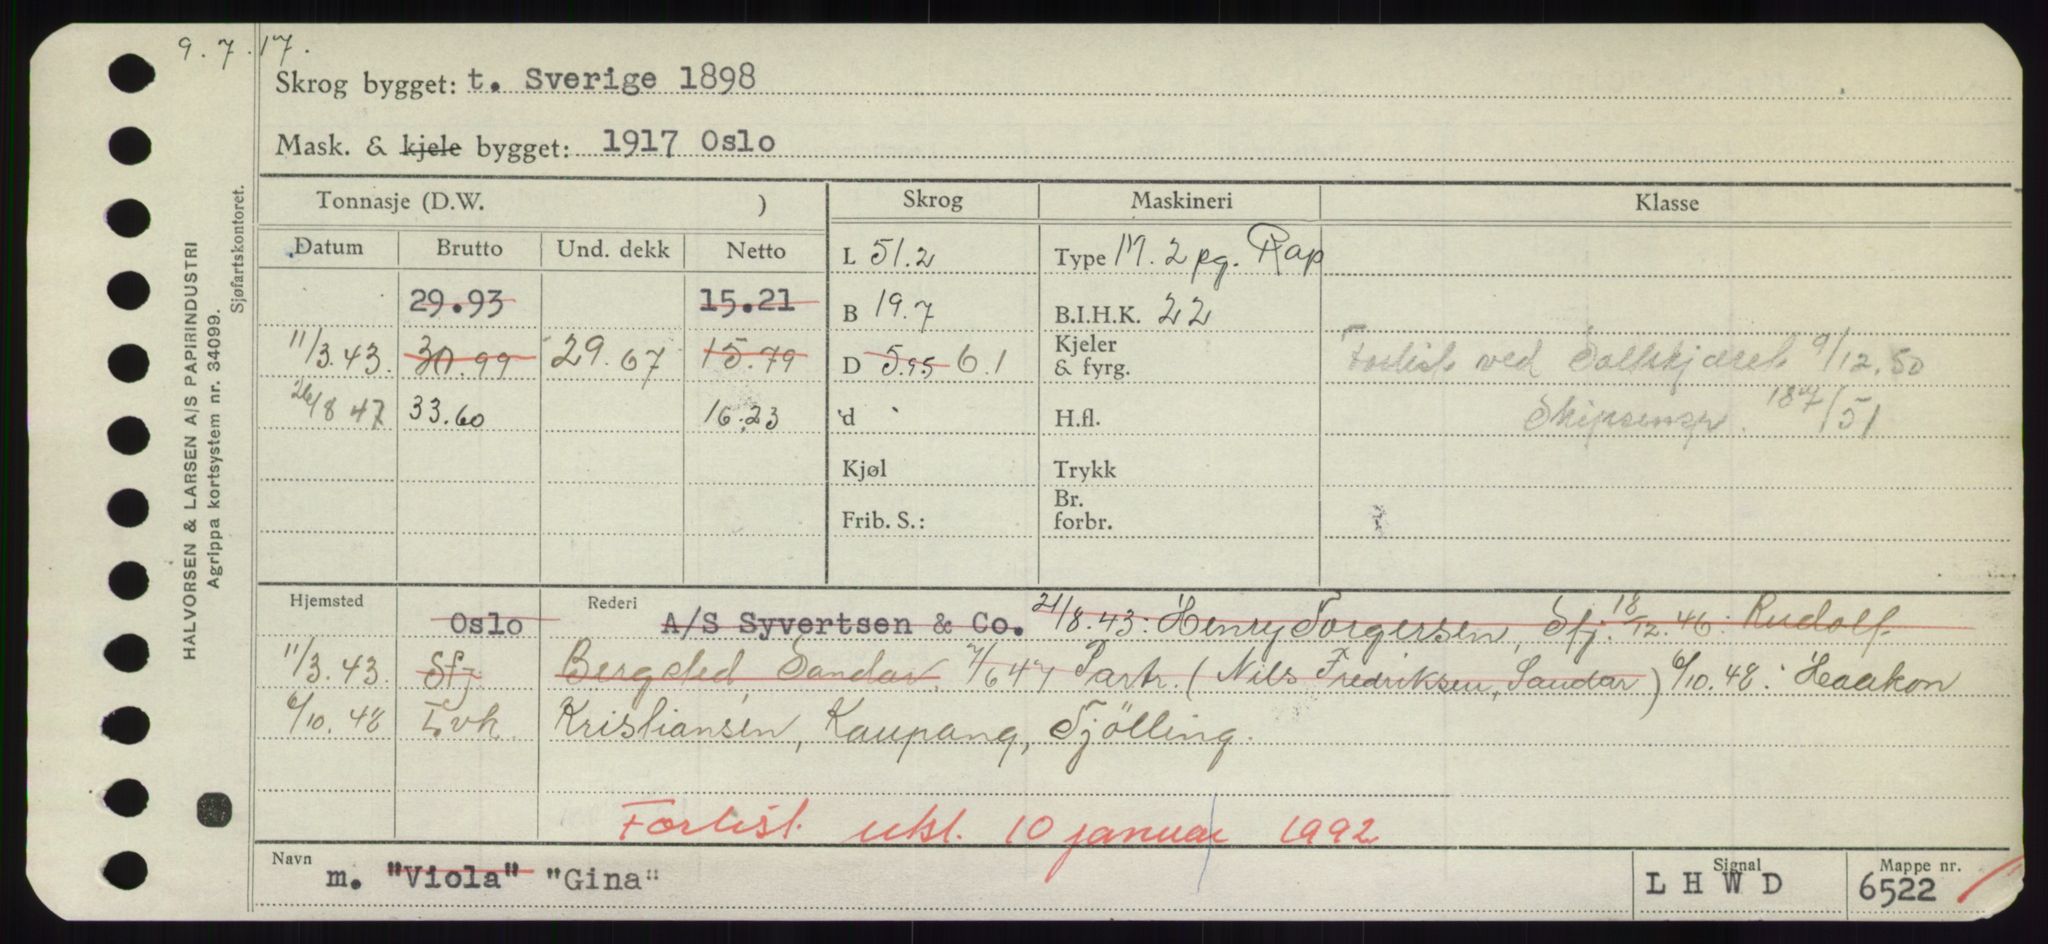 9.7.17.
Skrog bygget: t. Sverige 1898
Mask. & kjele bygget: 1917 Oslo
Tonnasje (D.W. ) Skrog Maskineri Klasse
Datum Brutto Und. dekk Netto L 51.2 Type M. 2 pg. Rap
29.93 15.21 B 19.7 B.I.H.K. 22
11/3.43. 30.99 29.67 15.79 D 5.95 6.1 Kjeler & fyrg. Forlist ved Saltskjæret 9/12.50
26/8 47 33.60 16.23 d H.fl. Skipsinsp. 187/51
Kjøl Trykk
Frib. S.: Br. forbr.
Hjemsted Oslo Rederi A/S Syvertsen & Co. 21/8.43: Henry Torgersen, Sfj. 18/12.46: Rudolf
11/3.43. Sfj. Bergsted, Sandar. 7/6 47 Partr. (Nils Fredriksen, Sandar) 6/10.48: Haakon
6/10.48 Lvk. Kristiansen, Kaupang, Tjölling.
Forlist utsl. 10 januar 1992
Navn m. "Viola" "Gina" Signal LHWD Mappe nr. 6522
HALVORSEN & LARSEN A/S PAPIRINDUSTRI
Agrippa kortsystem nr. 34099.
Sjøfartskontoret.